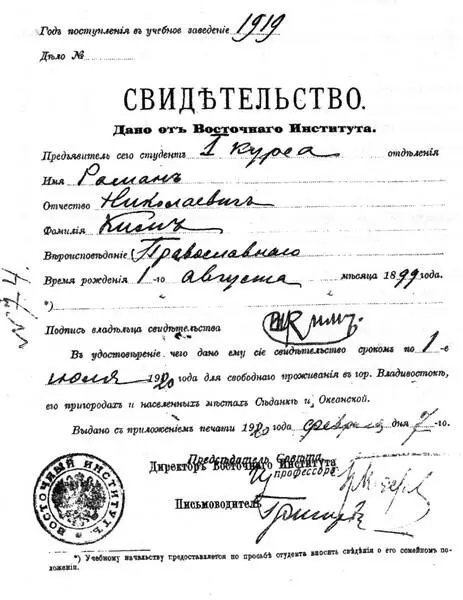 Годъ поступленія въ учебное заведеніе 1919
Дѣло №
СВИДѢТЕЛЬСТВО.
Дано отъ Восточнаго Института.
Предъявитель сего студентъ I курса отдѣленія
Имя Романъ
Отчество Николаевичъ
Фамилія Кимъ
Вѣроисповѣданіе Православнаго
Время рожденія 1-го августа мѣсяца 1899 года.
*)
Подпись владѣльца свидѣтельства Р Кимъ.
Въ удостовѣреніе чего дано ему сіе свидѣтельство срокомъ по 1-е
іюля 1920 года для свободнаго проживанія въ гор. Владивостокѣ,
его пригородахъ и населенныхъ мѣстахъ Сѣданкѣ и Океанской.
Выдано съ приложеніемъ печати 1920 года февраля дня 7-го.
Предсѣдатель Совѣта
Директоръ Восточнаго Института
профессоръ
Письмоводитель
ВОСТОЧНЫЙ ИНСТИТУТЪ
*) Учебному начальству предоставляется по просьбѣ студента вносить свѣдѣнія о его семейномъ по-
ложеніи.